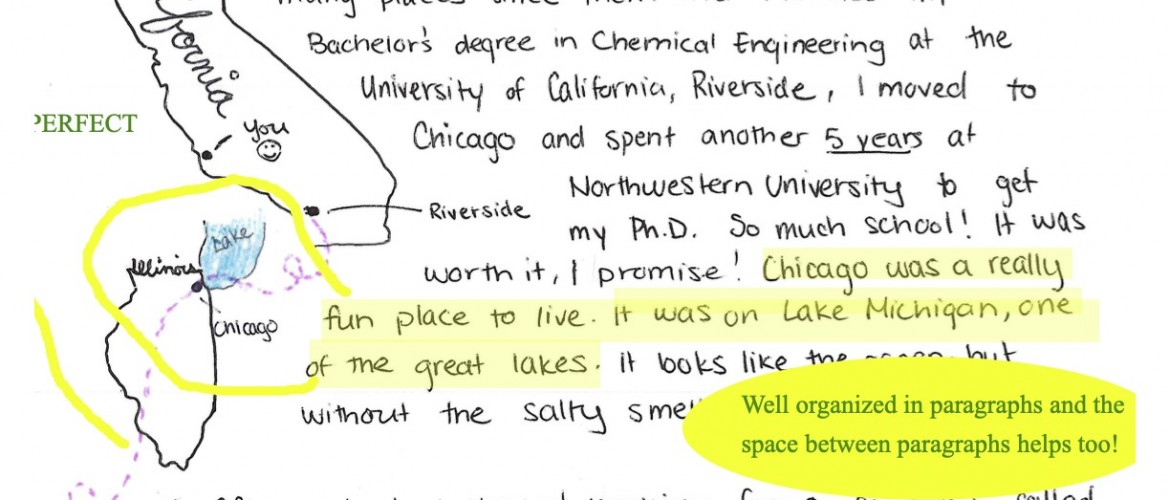 fornia
Bachelor's degree in Chemical Engineering at the
University of California, Riverside, I moved to
PERFECT
you
Chicago and spent another 5 years at
Northwestern University to get
Riverside
my Ph.D. So much school! It was
Lake
Illinois
worth it, I promise! Chicago was a really
Chicago
fun place to live. It was on Lake Michigan, one
of the great lakes. it looks like the ocean but
without the salty
Well organized in paragraphs and the
space between paragraphs helps too!